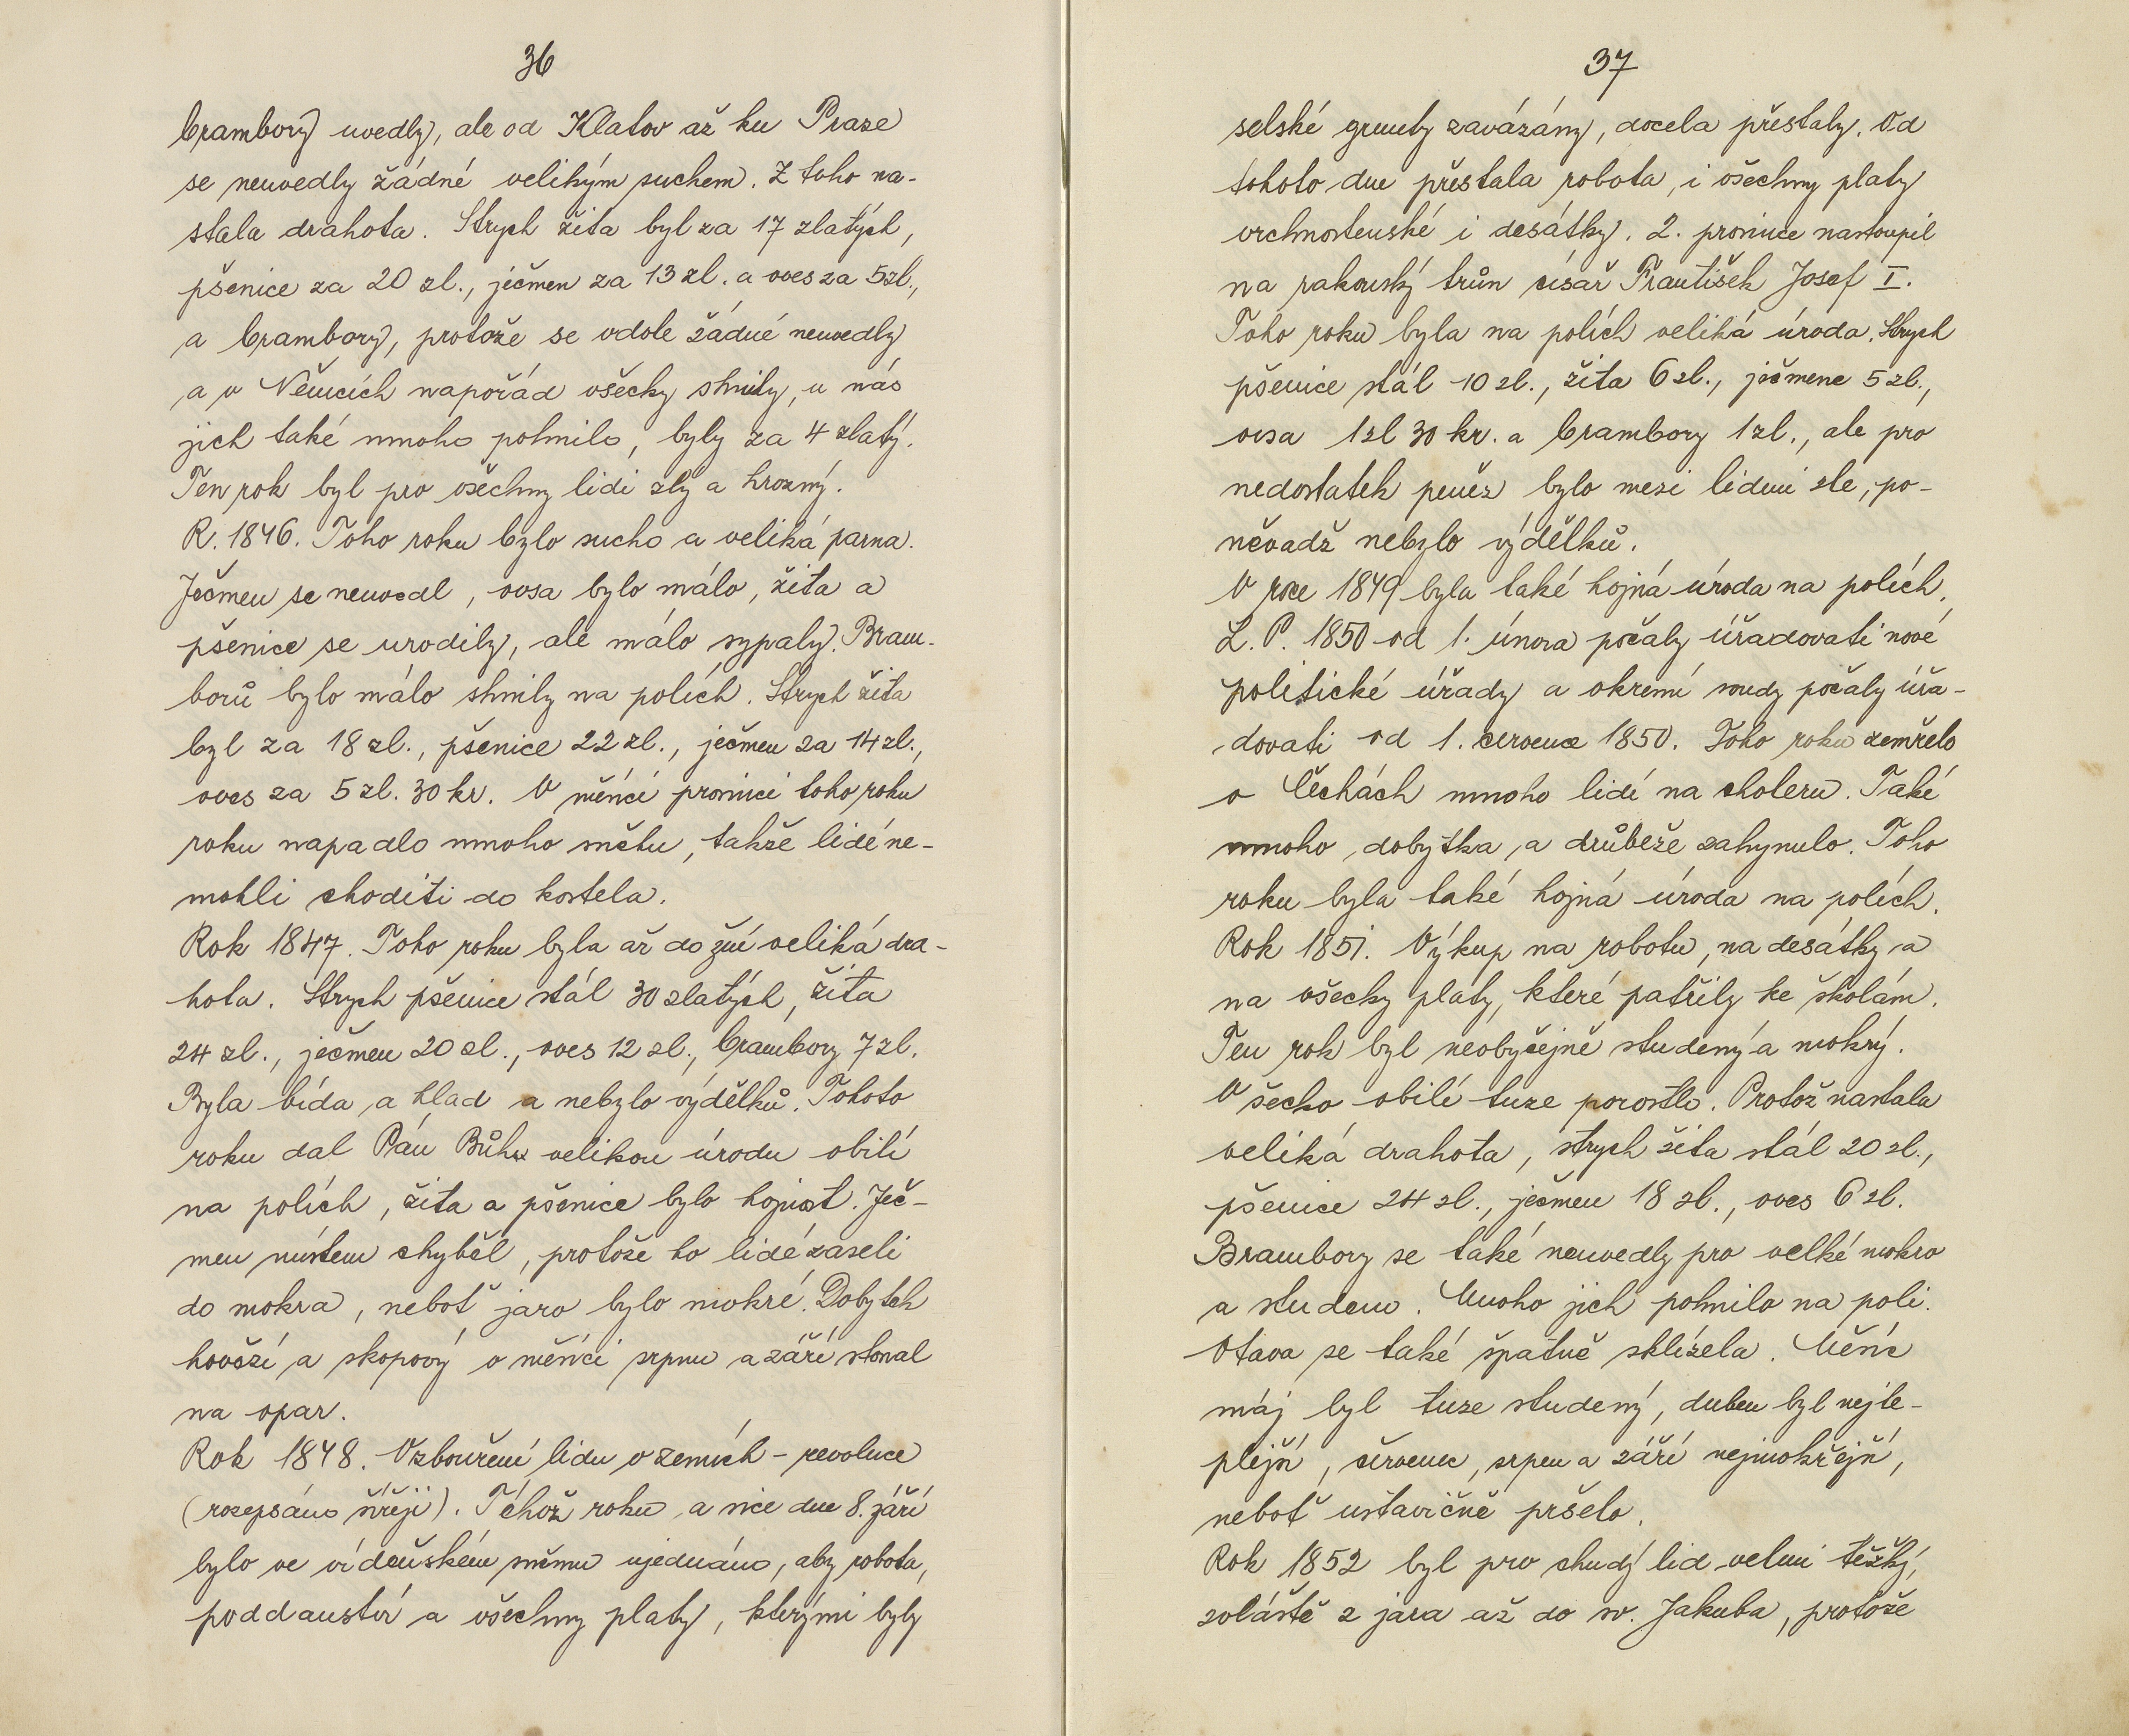 36
brambory uvedly, ale od Klatov až ku Praze
se neuvedly žádné velikým suchem. Z toho na-
stala drahota. Strych žita byl za 17 zlatých,
pšenice za 20 zl., ječmen za 13 zl. a oves za 5zl.,
a brambory, protože se vdole žádné neuvedly
a v Němcích napořád všecky shnily, u nás
jich také mnoho pohnilo, byly za 4 zlatý.
Ten rok byl pro všechny lidi zlý a hrozný.
R. 1846. Toho roku bylo sucho a veliká parna.
Ječmen se neuvedl, ovsa bylo málo, žita a
pšenice se urodily, ale málo sypaly. Bram-
borů bylo málo shnily na polích. Strych žita
byl za 18 zl., pšenice 22 zl., ječmen za 14 zl.,
oves za 5 zl. 30 kr. V měsíci prosinci toho roku
roku napadlo mnoho sněhu, takže lidé ne-
mohli choditi do kostela.
Rok 1847. Toho roku byla až do žní veliká dra-
hota. Strych pšenice stál 30 zlatých, žita
24 zl., ječmen 20 zl., oves 12 zl., brambory 7 zl.
Byla bída a hlad a nebylo výdělků. Tohoto
roku dal Pán Bůh velikou úrodu obilí
na polích, žita a pšenice bylo hojnost. Ječ-
men místem chyběl, protože ho lidé zaseli
do mokra, neboť jaro bylo mokré. Dobytek
hovězí a skopový v měsíci srpnu a září stonal
na opar.
Rok 1848. Vzbouření lidu v zemích - revoluce
(rozepsáno šířeji). Téhož roku a sice dne 8. září
bylo ve vídeňském sněmu ujednáno, aby robota,
poddanství a všechny platy, kterými byly
37
selské grunty zavázány, docela přestaly. Od
tohoto dne přestala robota, i všechny platy
vrchnostenské i desátky. 2. prosince nastoupil
na rakouský trůn císař František Josef I.
Toho roku byla na polích veliká úroda. Strych
pšenice stál 10 zl., žita 6 zl., ječmene 5 zl.,
ovsa 1zl 30 kr. a brambory 1 zl., ale pro
nedostatek peněz bylo mezi lidmi zle, po-
něvadž nebylo výdělků.
V roce 1849 byla také hojná úroda na polích.
L. P. 1850 od 1. února počaly úřadovati nové
politické úřady a okresní soudy počaly úřa-
dovati od 1. července 1850. Toho roku zemřelo
v Čechách mnoho lidí na choleru. Také
mnoho dobytka a drůbeže zahynulo. Toho
roku byla také hojná úroda na polích.
Rok 1851. Výkup na robotu, na desátky a
na všecky platy, které patřily ke školám.
Ten rok byl neobyčejně studený a mokrý.
Všecko obilí tuze porostlo. Protož nastala
veliká drahota, strych žita stál 20 zl.,
pšenice 24 zl., ječmen 18 zl., oves 6 zl.
Brambory se také neuvedly pro velké mokro
a studeno. Mnoho jich pohnilo na poli.
Otava se také špatně sklízela. Měsíc
máj byl tuze studený, duben byl nejte-
plejší, červenec, srpen a září nejmokřejší,
neboť ustavičně pršelo.
Rok 1852 byl pro chudý lid velmi těžký,
zvláště z jara až do sv. Jakuba, protože